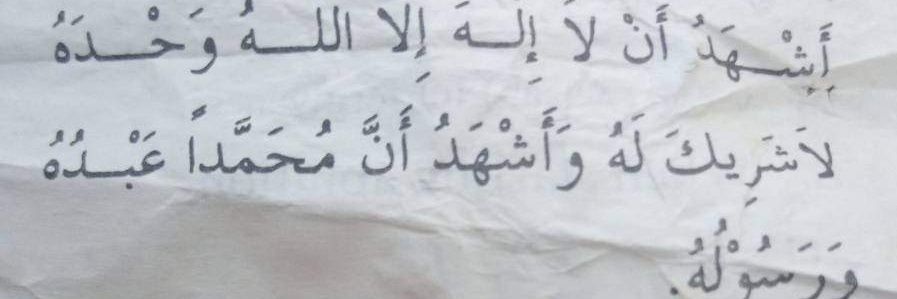 أَشْهَدُ أَنْ لَا إِلَهَ إِلا اللهُ وَحْدَهُ
لاَشَرِيكَ لَهُ وَأَشْهَدُ أَنَّ مُحَمَّداً عَبْدُهُ
وَرَسُوْلُهُ.